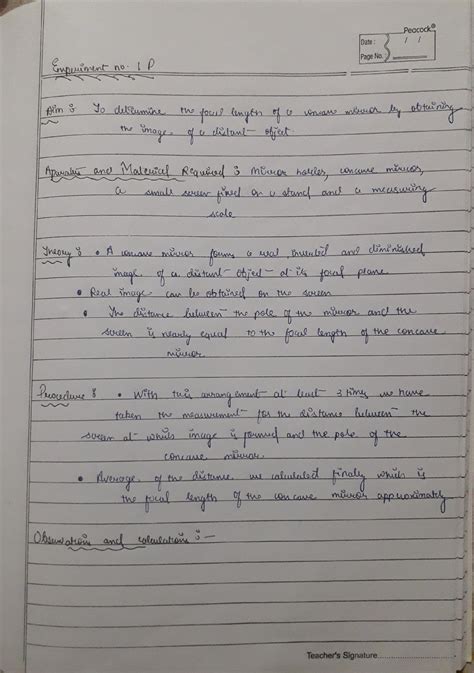 Peacock®
Date : / /
Page No.
Experiment no. 1 P
Aim : To determine the focal length of a concave mirror by obtaining
the image of a distant object.
Apparatus and Material Required : Mirror holder, concave mirror,
a small screen fixed on a stand and a measuring
scale
Theory : • A concave mirror forms a real, inverted and diminished
image of a distant object at its focal plane
• Real image can be obtained on the screen
• The distance between the pole of the mirror and the
screen is nearly equal to the focal length of the concave
mirror
Procedure : • With this arrangement at least 3 times we have
taken the measurement for the distance between the
screen at which image is formed and the pole of the
concave mirror.
• Average of the distance we calculated finally which is
the focal length of the concave mirror approximately
Observations and calculations : —
Teacher's Signature